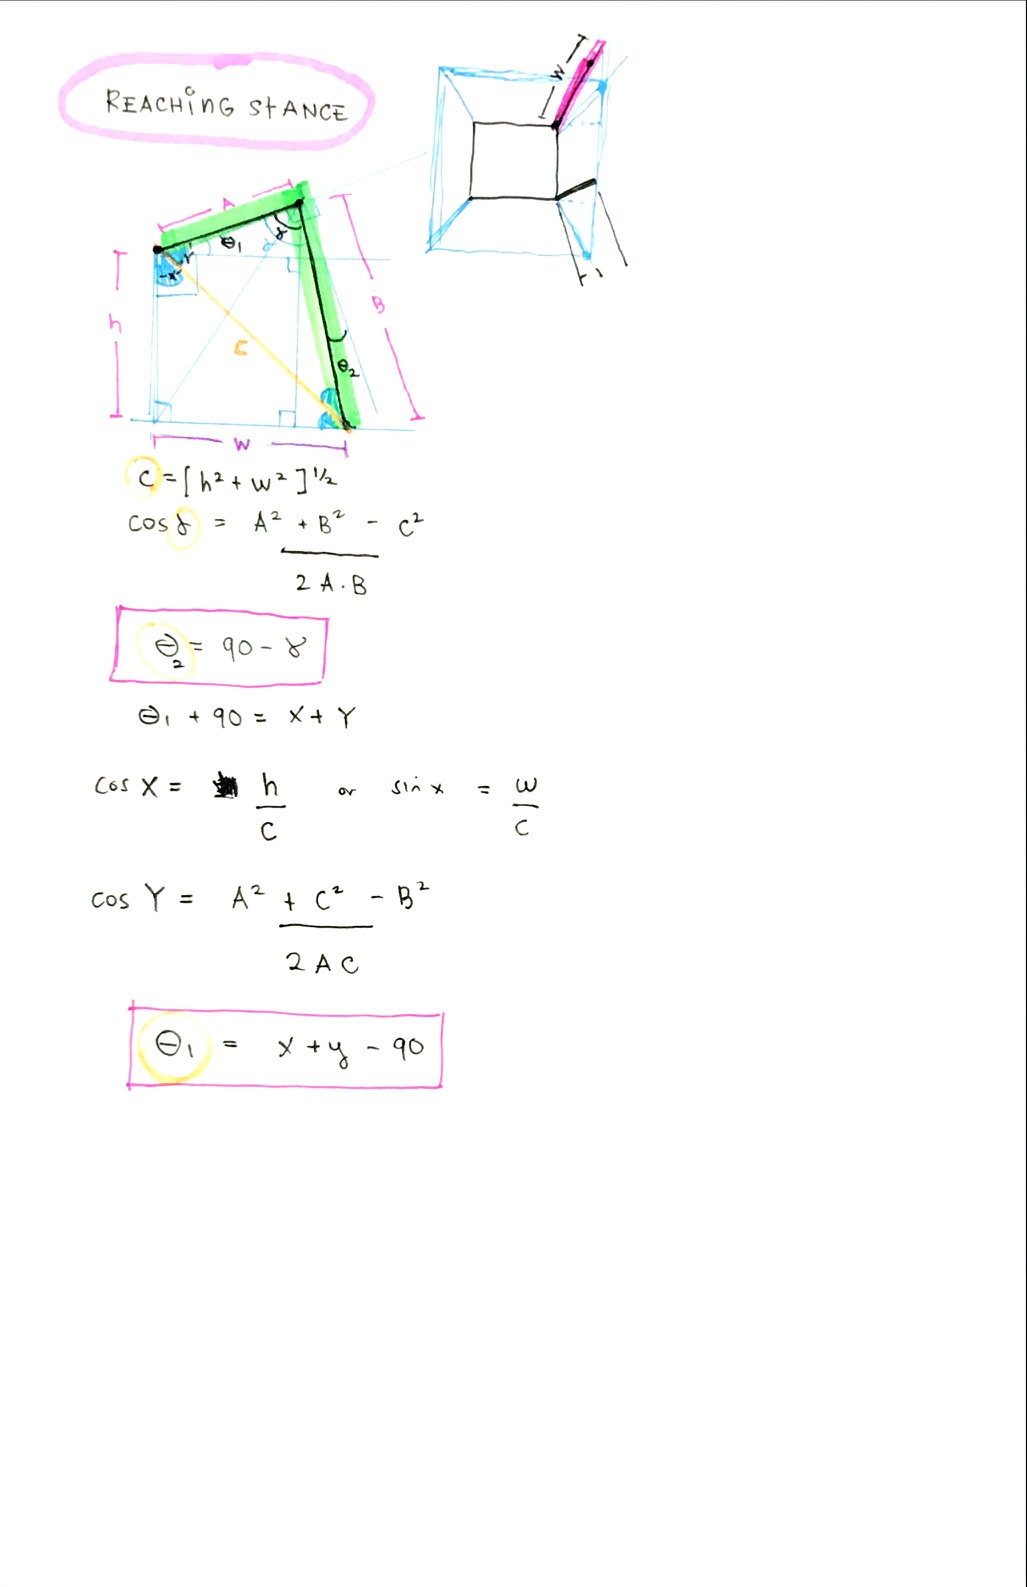 REACHING STANCE
W
A
θ₁
γ
Y
X
h
C
B
θ₂
W
C = [h² + w²]^½
cos γ = A² + B² - C²
2 A · B
θ₂ = 90 - γ
θ₁ + 90 = X + Y
cos X = h or sin x = w
C C
cos Y = A² + C² - B²
2 A C
θ₁ = x + y - 90